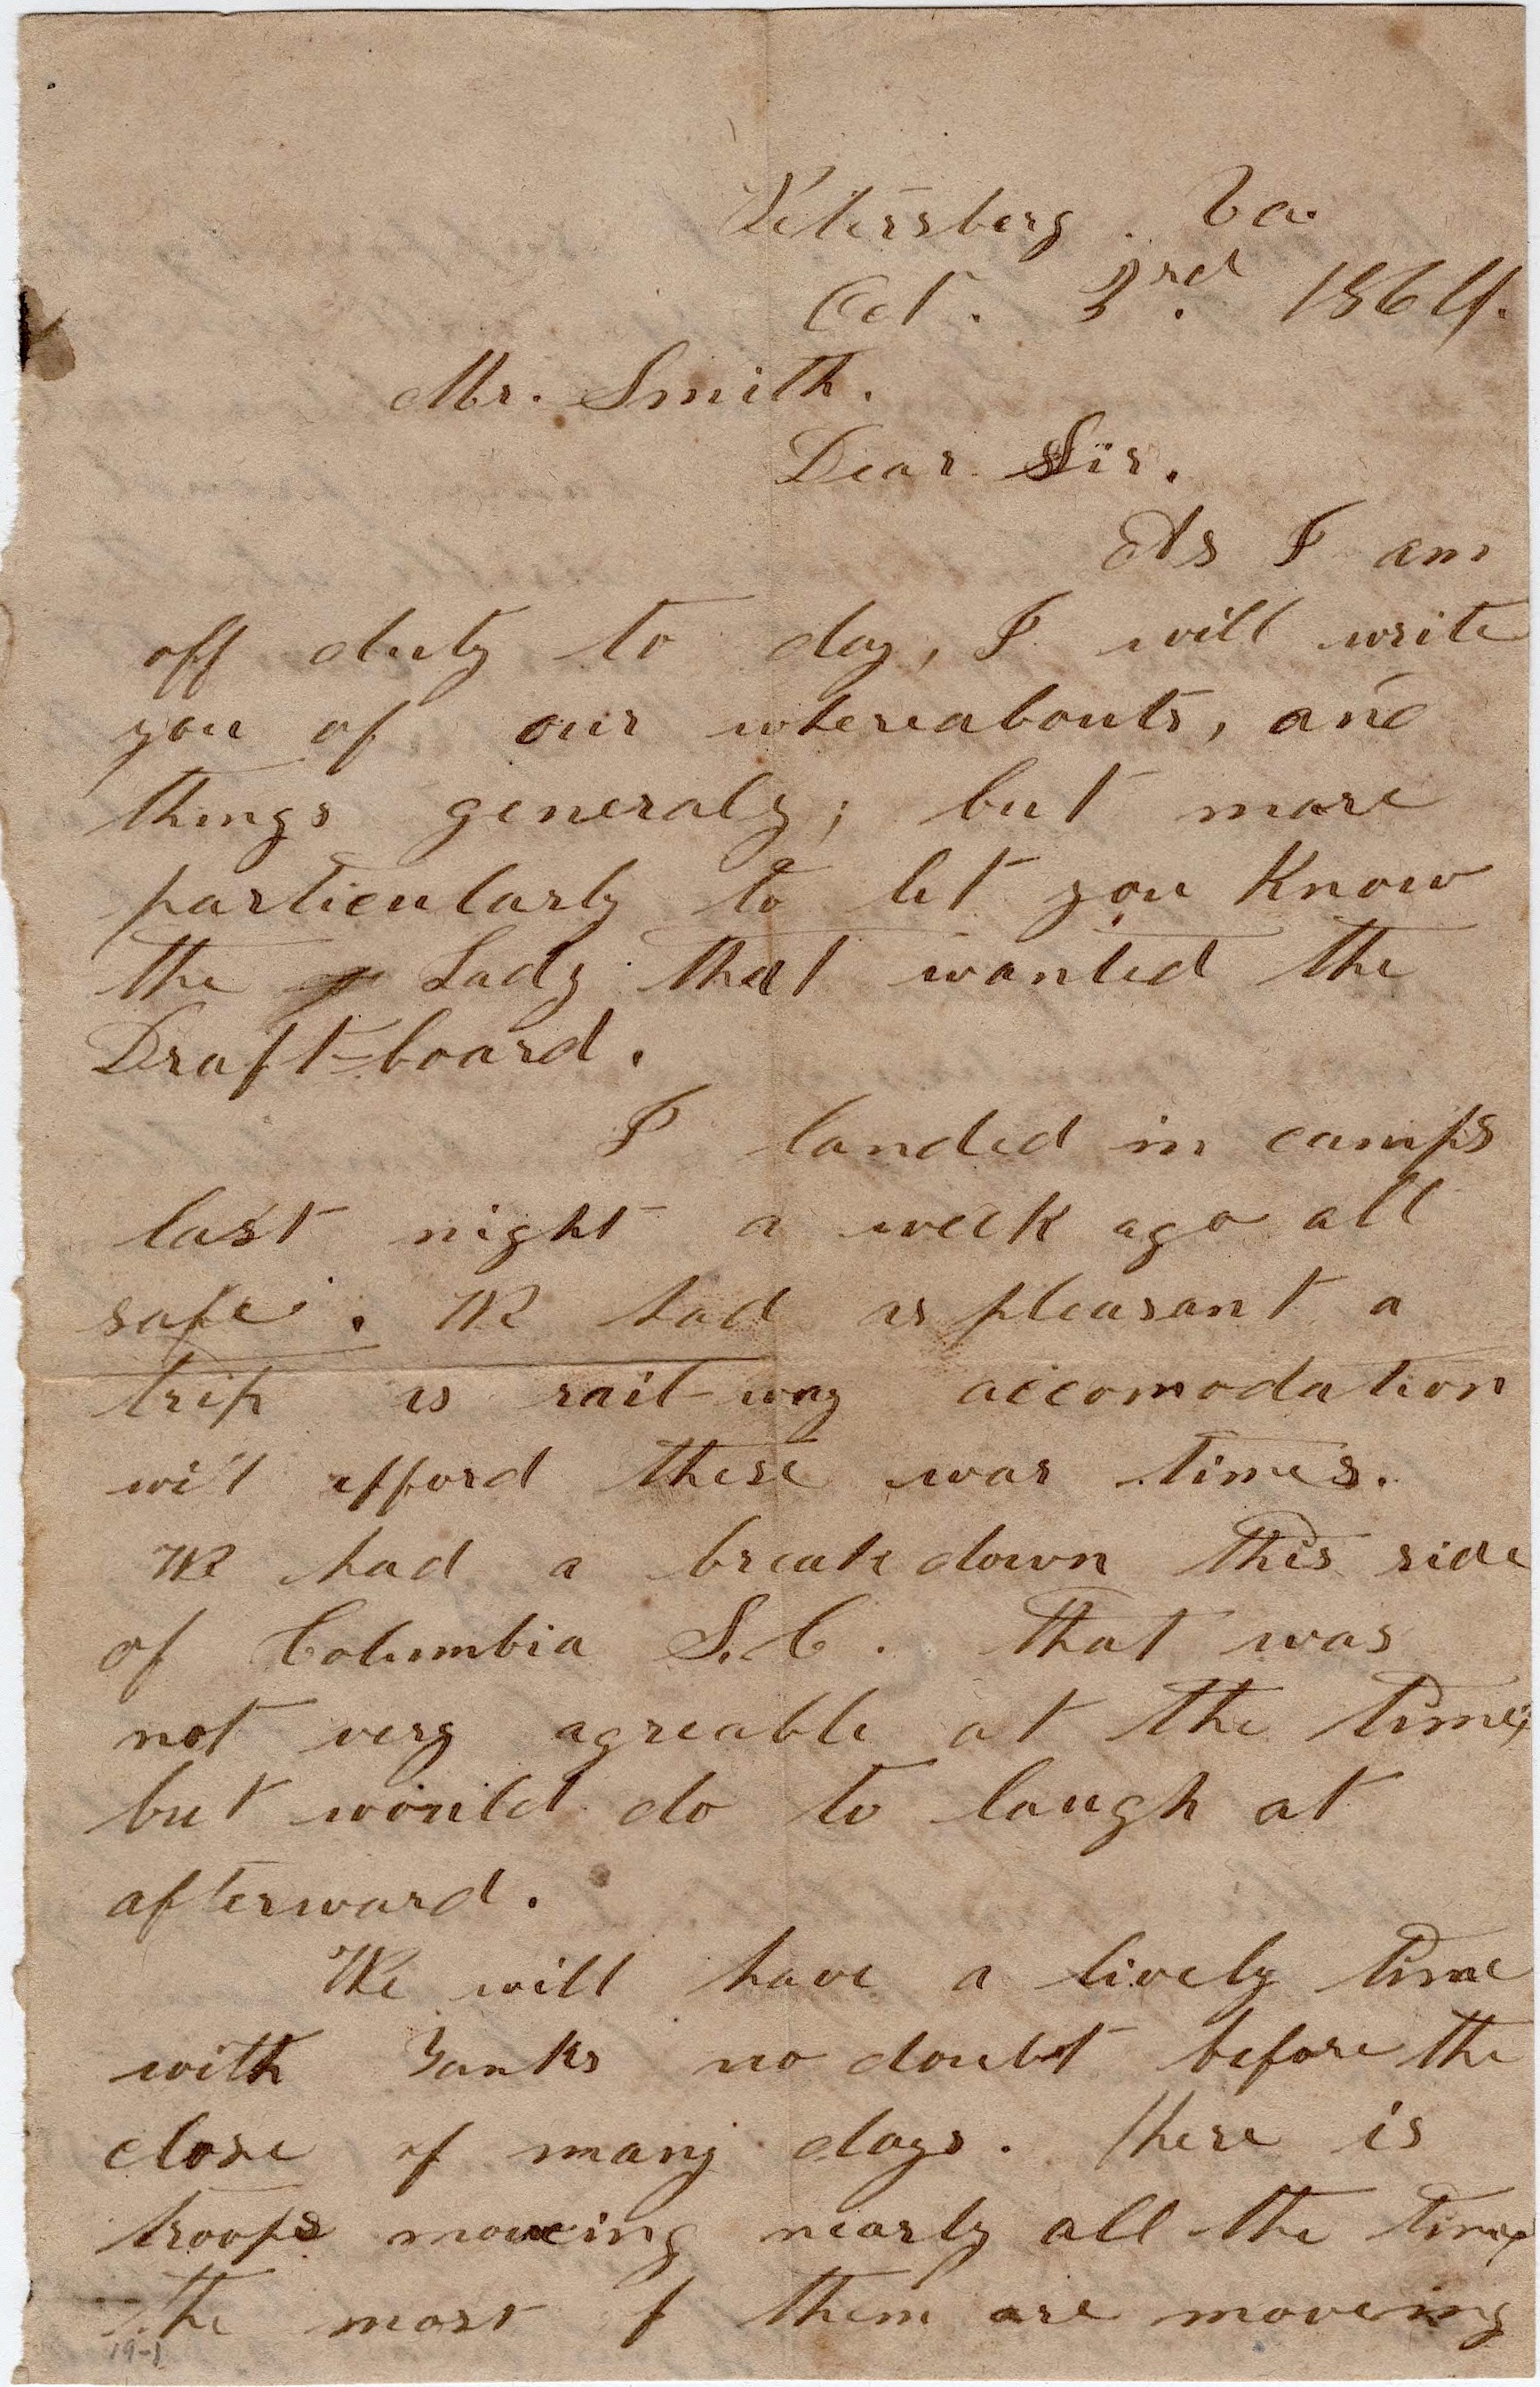 Petersberg. Va.
Oct. 3rd. 1864.
Mr. Smith.
Dear Sir.
As I am
off duty to day, I will write
you of our whereabouts, and
things generaly; but more
particularly to let you know
the Lady that wanted the
Draft-board.
I landed in camps
last night a week ago all
safe. We had as pleasant a
trip as rail-way accomodation
will afford these war times.
We had a break down this side
of Columbia S.C. That was
not very agreable at the time;
but would do to laugh at
afterward.
We will have a lively time
with Yanks no doubt before the
close of many days. There is
troops moveing nearly all the time
the most of them are moveing
19-1